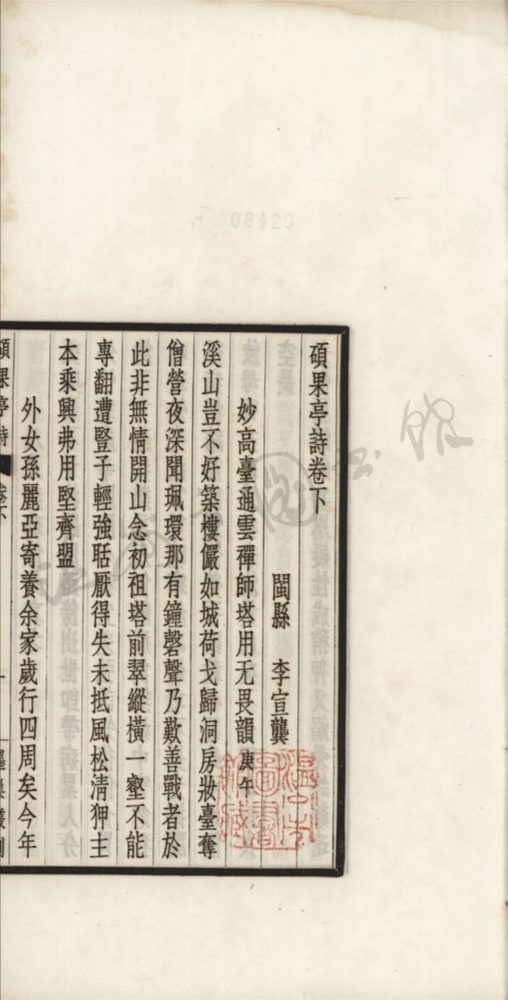 碩果亭詩卷下
閩縣　李宣龔
妙高臺通雲禪師塔用无畏韻庚午
溪山豈不好築樓儼如城荷戈歸洞房妝臺奪
僧營夜深聞珮環那有鐘磬聲乃歎善戰者於
此非無情開山念初祖塔前翠縱橫一壑不能
專翻遭豎子輕強聒厭得失未抵風松清狎主
本乘興弗用堅齊盟
外女孫麗亞寄養余家歲行四周矣今年
碩果亭詩
卷下
一
墨巢叢刻
08420